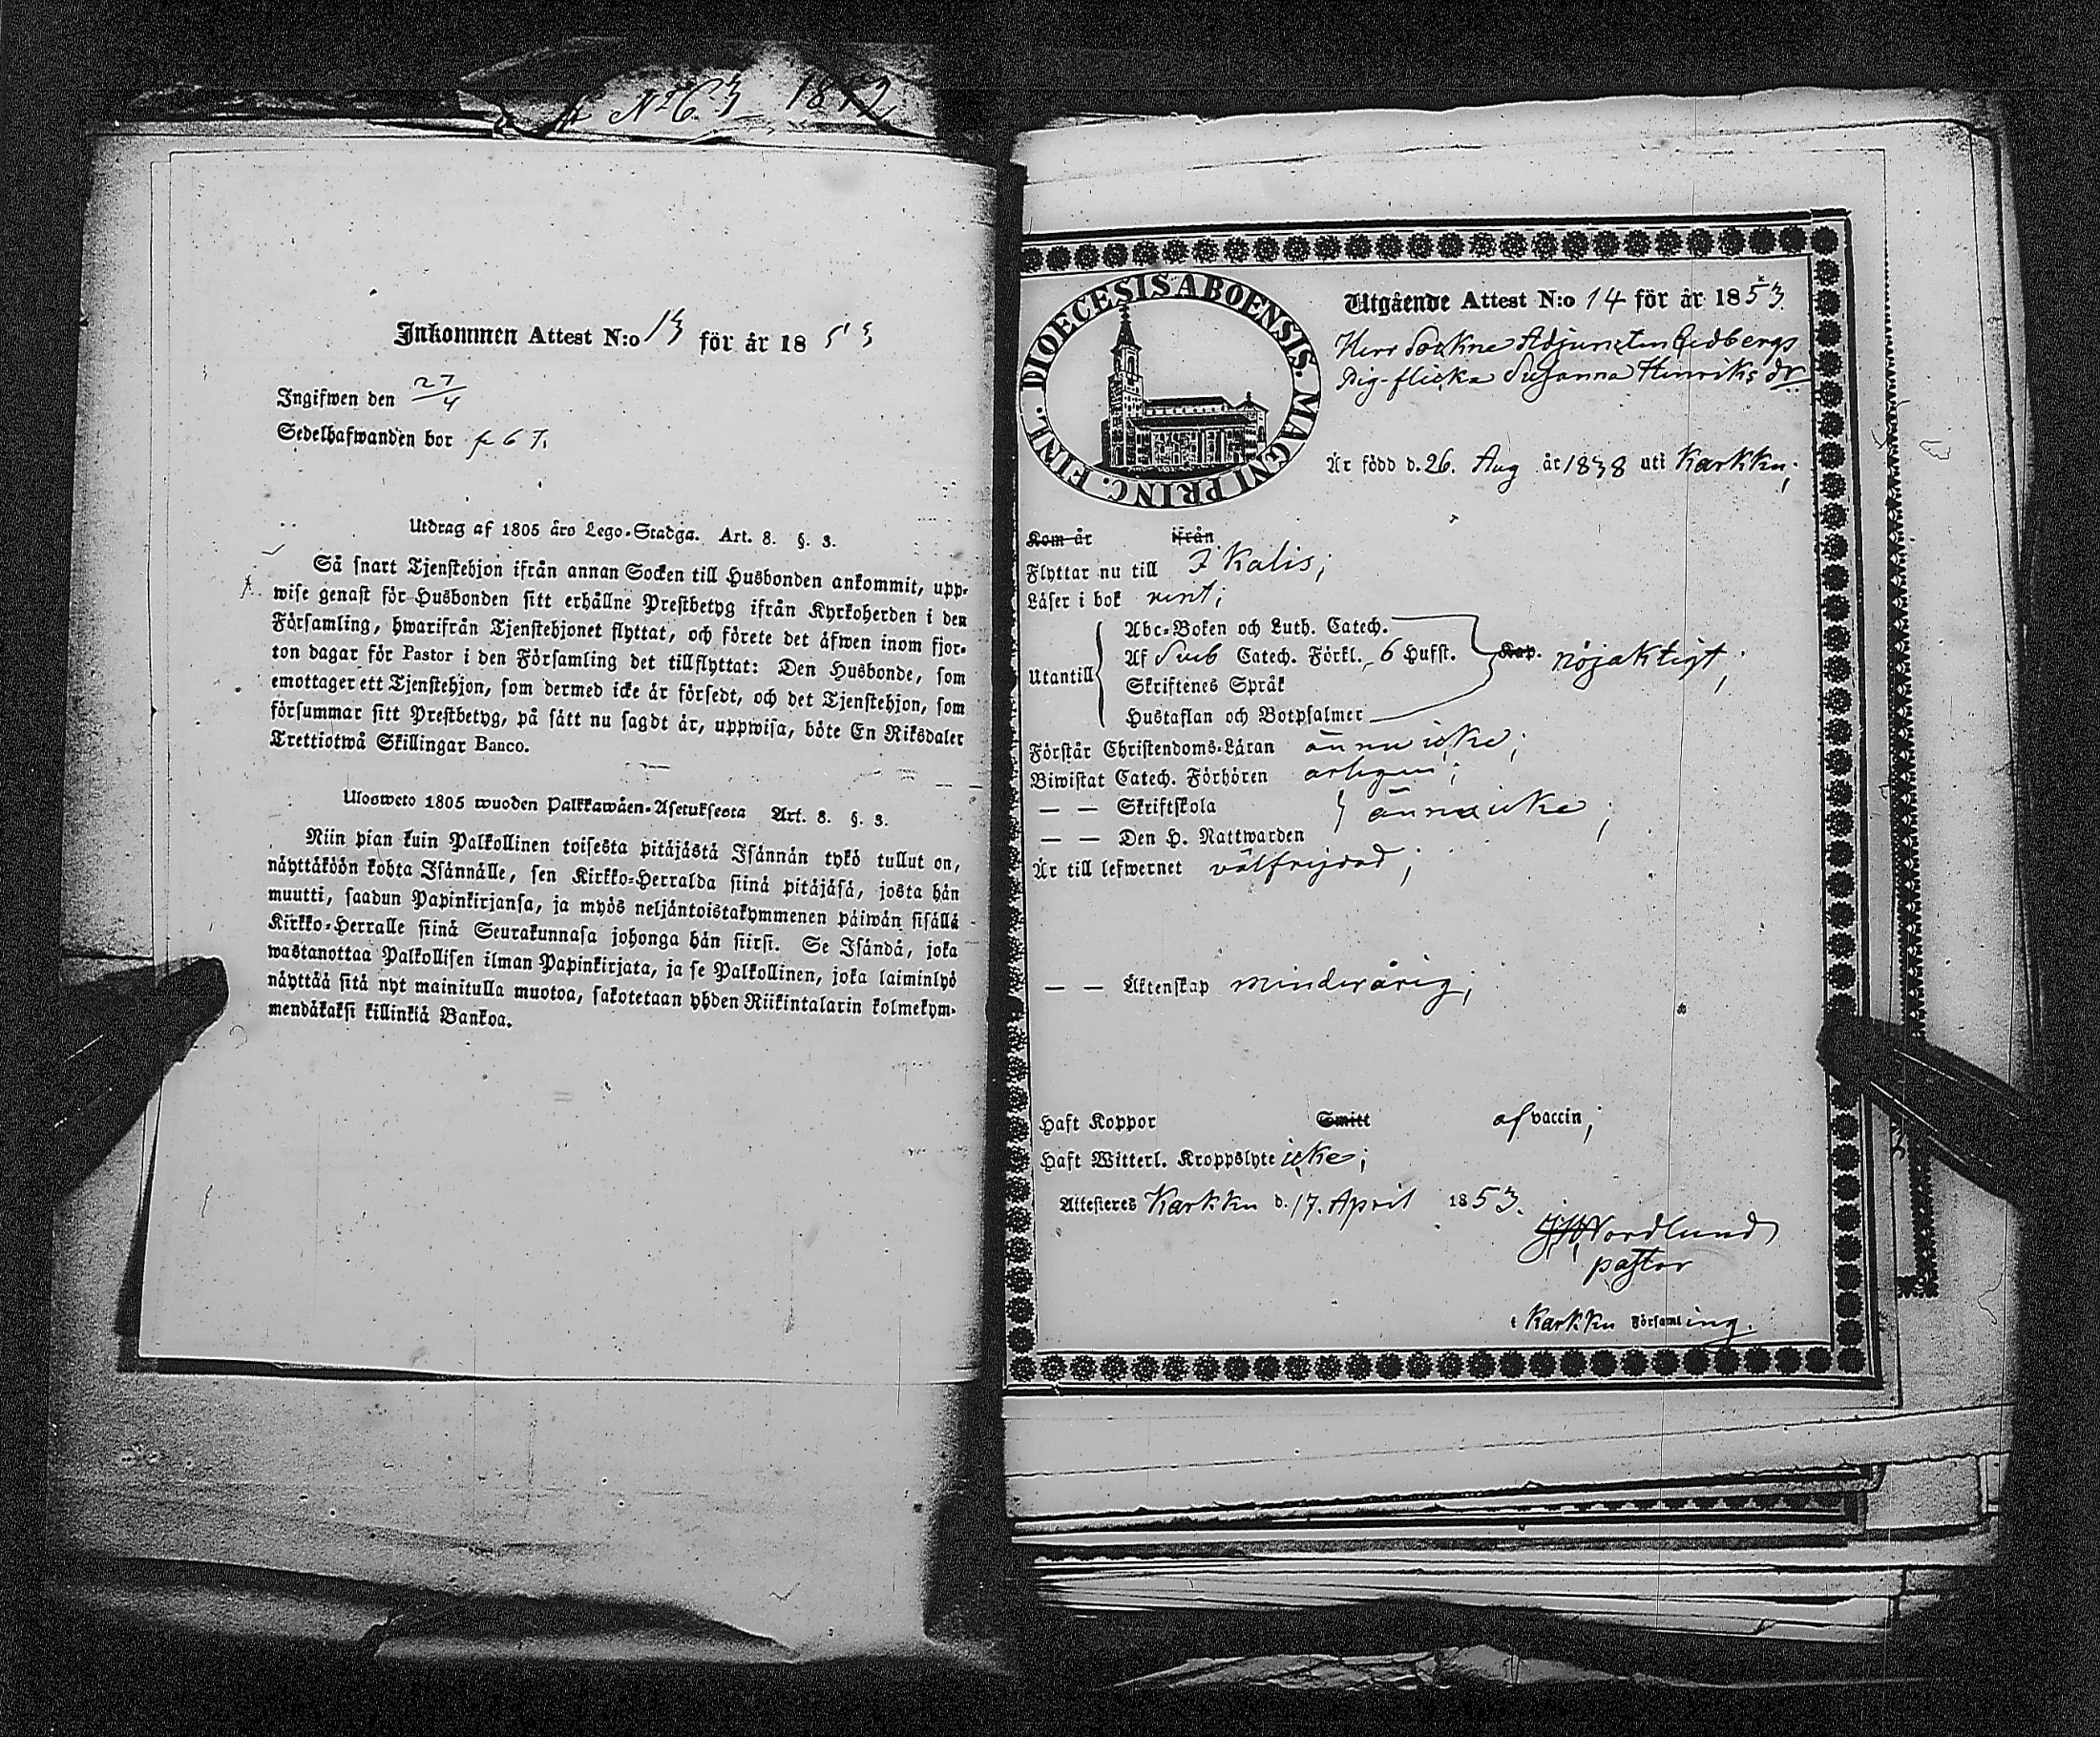 No 63 18
Inkommen Attest N:o 13 för år 1853
Ingifwen den 27/4
Sedelhafwanden bor p 67.
Utdrag af 1805 års Lego-Stadga. Art. 8. §. 3.
Så snart Tjenstehjon ifrån annan Socken till Husbonden ankommit, upp-
wise genast för Husbonden sitt erhållne Prestbetyg ifrån Kyrkoherden i den
Församling, hwarifrån Tjenstehjonet flyttat, och förete det äfwen inom fjor-
ton dagar för Pastor i den Församling det tillflyttat: Den Husbonde, som
emottager ett Tjenstehjon, som dermed icke är försedt, och det Tjenstehjon, som
försummar sitt Prestbetyg, på sätt nu sagdt är, uppwisa, böte En Riksdaler
Trettiotwå Skillingar Banco.
Ulosweto 1805 wuoden Palkkawäen-Asetuksesta Art. 8. §. 3.
Niin pian kuin Palkollinen toisesta pitäjästä Isännän tykö tullut on,
näyttäköön kohta Isännälle, sen Kirkko-Herralda siinä pitäjäsä, josta hän
muutti, saadun Papinkirjansa, ja myös neljäntoistakymmenen päiwän sisällä
Kirkko-Herralle siinä Seurakunnasa johonga hän siirsi. Se Isändä, joka
wastanottaa Palkollisen ilman Papinkirjata, ja se Palkollinen, joka laiminlyö
näyttää sitä nyt mainitulla muotoa, sakotetaan yhden Riikintalarin kolmekym-
mendäkaksi killinkiä Bankoa.
DIOECESIS ABOENSIS. MAGNI PRINC. FINL.
Utgående Attest N:o 14 för år 1853
Herr Sockne Adjuncten Cedbergs
Pig-flicka Susanna Henriks dr
Är född d. 26. Aug år 1838 uti Karkku;
Kom år ifrån
Flyttar nu till Ikalis;
Läser i bok rent;
Utantill
Abc-Boken och Luth. Catech.
Af Sveb Catech. Förkl. 6 Hufst. Kap. nöjaktigt;
Skriftenes Språk
Hustaflan och Botpsalmer
Förstår Christendoms-Läran ännu icke;
Biwistat Catech. Förhören årligen;
— — Skriftskola
ännu icke;
— — Den H. Nattwarden
Är till lefwernet välfrejdad;
— — Äktenskap minderårig;
Haft Koppor Smitt af vaccin;
Haft Witterl. Kroppslyte icke;
Attesteres Karkku d. 17. April 1853.
Nordlund
pastor
i Karkku Församling.